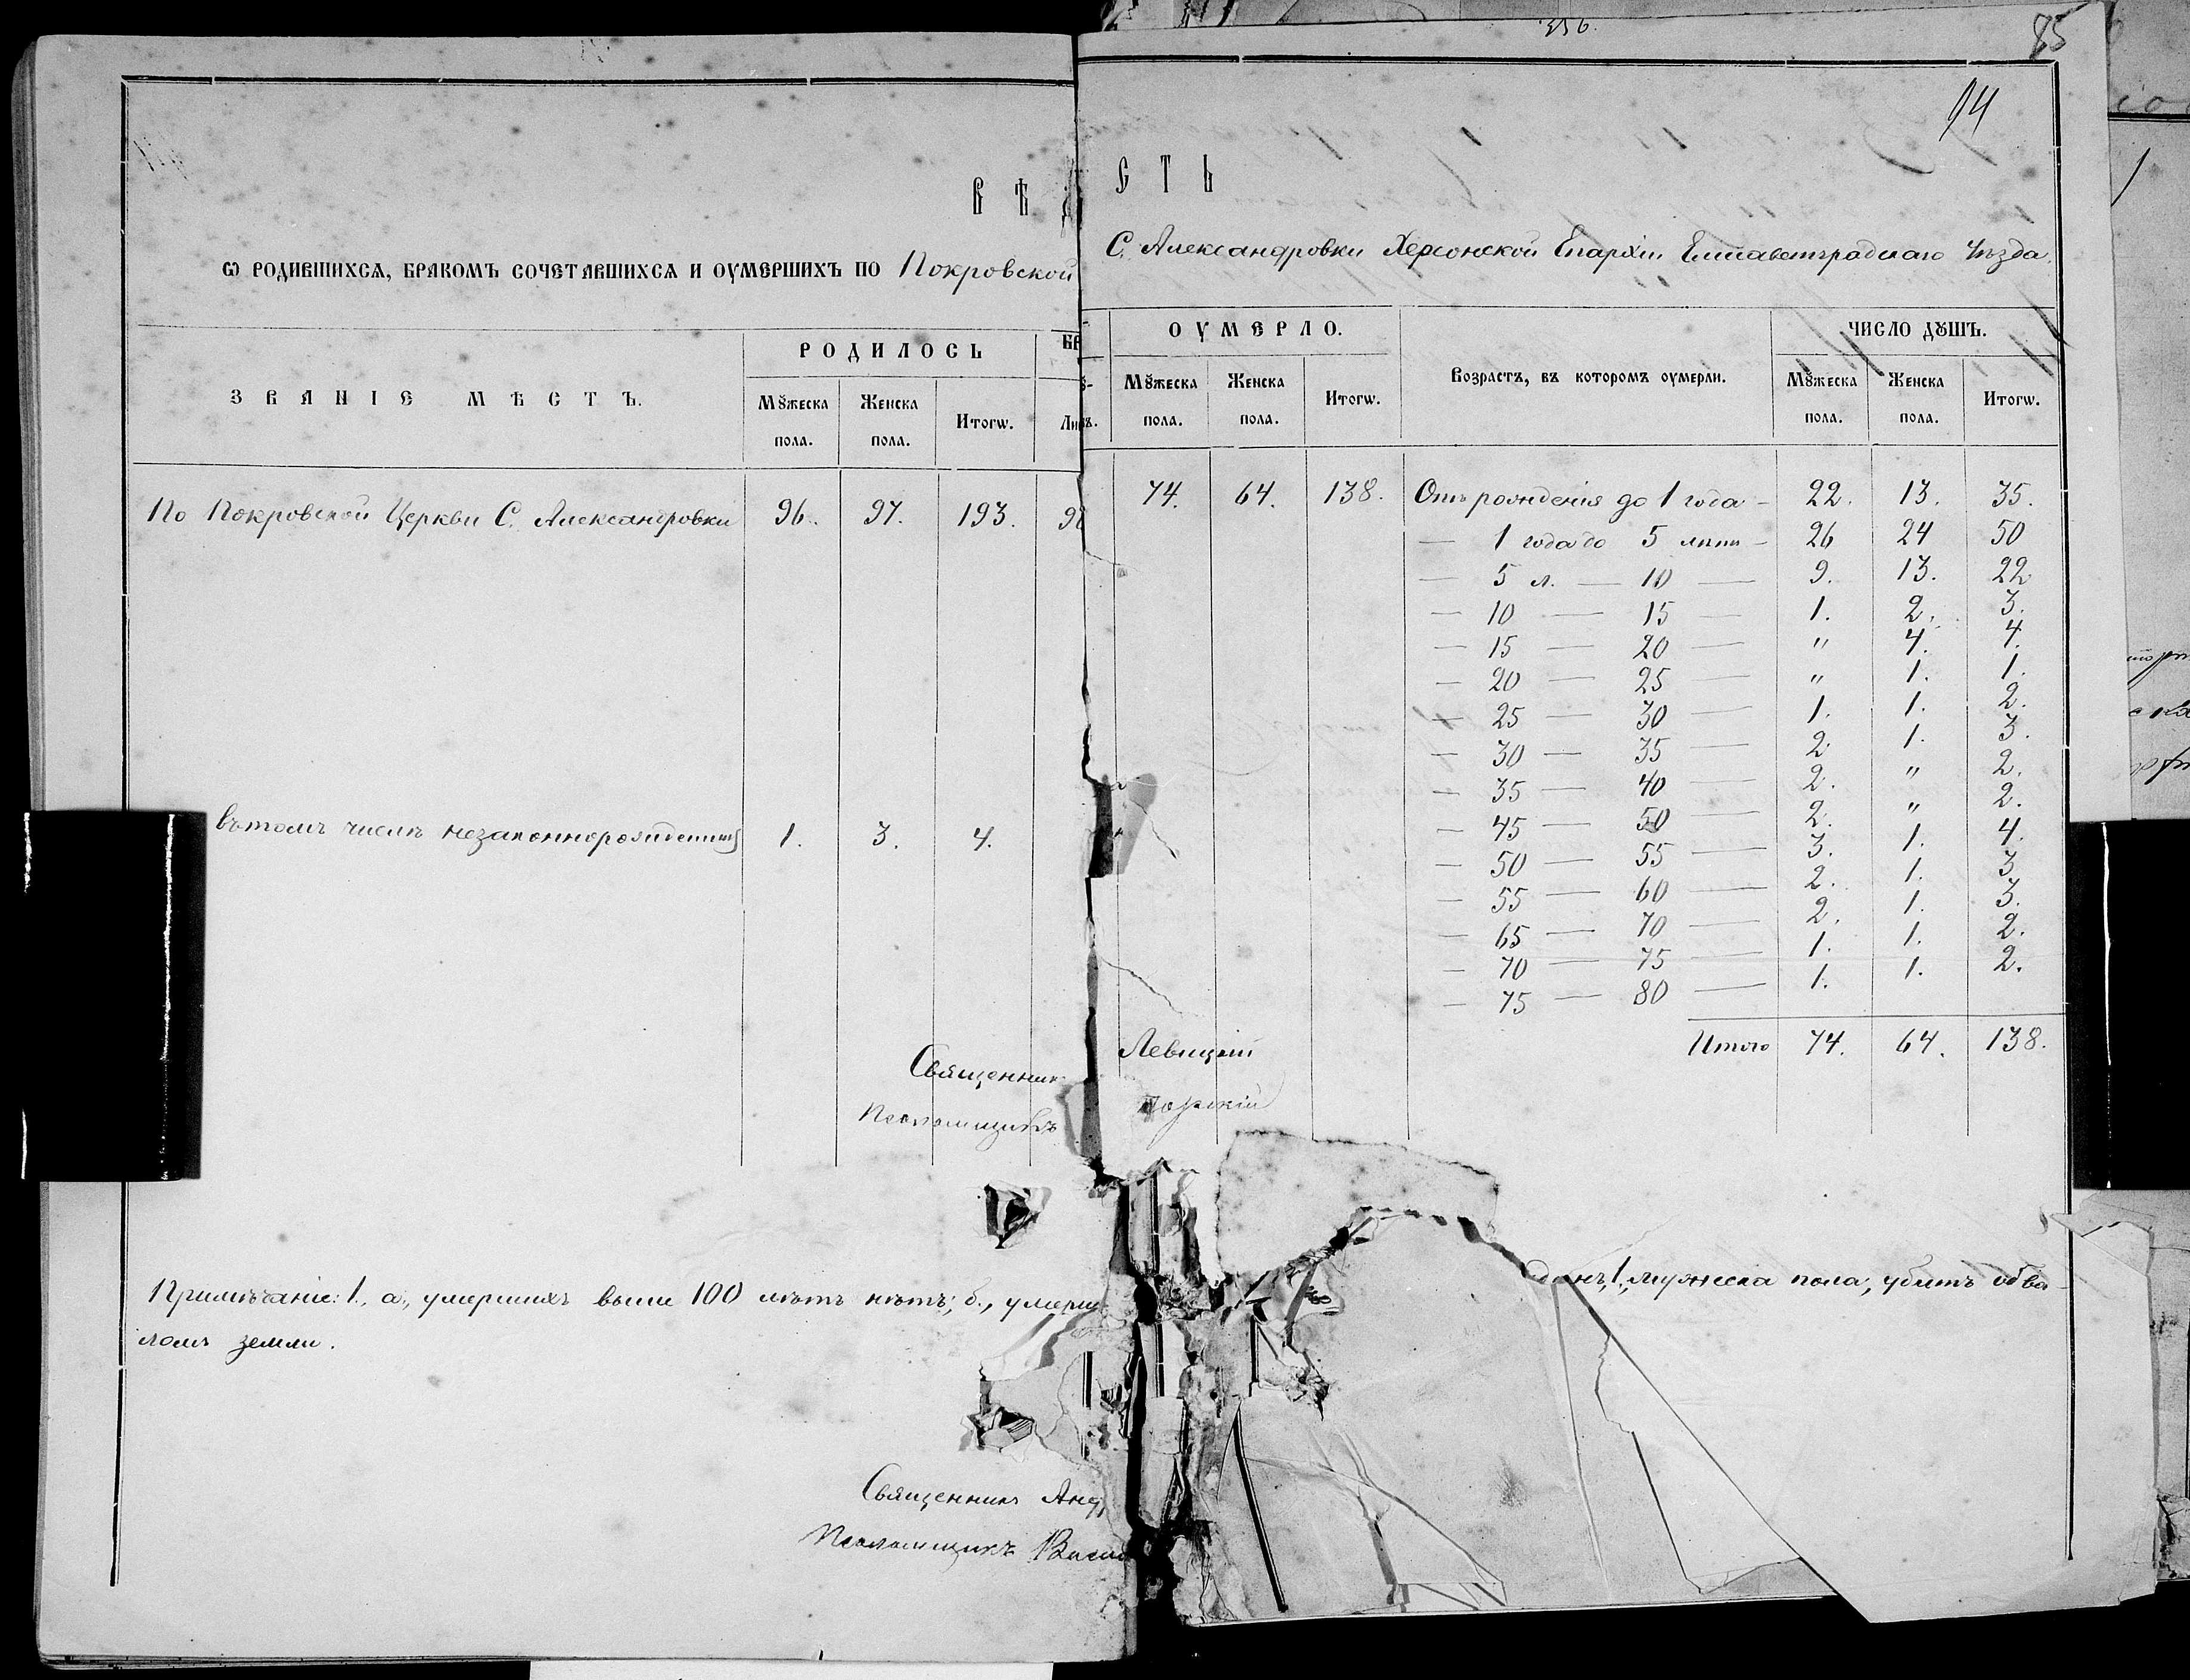 356.
85
94
ВѢ
СТЬ
Ѡ РОДИВШИХСѦ, БРАКОМЪ СОЧЕТАВШИХСѦ И ОУМЕРШИХЪ ПО Покровской
С. Александровки Херсонской Епархіи Елисаветградскаго Уѣзда.
ЗВАНІЕ МѢСТЪ.
РОДИЛОСЬ
ОУМЕРЛО.
Возрастъ, въ которомъ оумерли.
ЧИСЛО ДꙊШЪ.
Мꙋжеска пола.
Женска пола.
Итогѡ.
Мꙋжеска пола.
Женска пола.
Итогѡ.
Мꙋжеска пола.
Женска пола.
Итогѡ.
По Покровской Церкви С. Александровки 96. 97. 193.
74. 64. 138. Отъ рожденія до 1 года — 22. 13. 35.
— 1 года до 5 лѣтъ — 26 24 50
— 5 л. — 10 — 9. 13. 22
— 10 — 15 — 1. 2. 3.
— 15 — 20 — " 4. 4.
— 20 — 25 — " 1. 1.
— 25 — 30 — 1. 1. 2.
— 30 — 35 — 2. 1. 3.
— 35 — 40 — 2. " 2.
— 45 — 50 — 2. " 2.
— 50 — 55 — 3. 1. 4.
— 55 — 60 — 2. 1. 3
— 65 — 70 — 2. 1. 3.
— 70 — 75 — 1. 1. 2.
— 75 — 80 — 1. 1. 2.
Итого 74. 64. 138.
въ томъ числѣ незаконнорожденныхъ 1. 3. 4.
Священник Левицкій
Псаломщикъ
Примѣчаніе: 1., а., умершихъ выше 100 лѣтъ нѣтъ; б., умерш
одинъ, 1, мужеска пола, убитъ обва-
ломъ земли.
Священникъ Анд
Псаломщикъ Васи